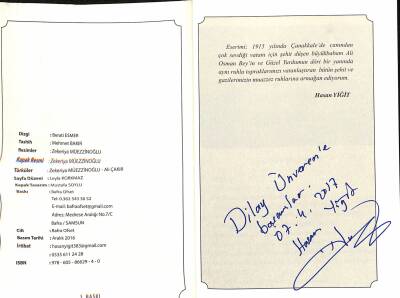 Dizgi : Berati ESMER
Tashih : Mehmet BAKIR
Resimler : Zekeriya MÜEZZİNOĞLU
Kapak Resmi : Zekeriya MÜEZZİNOĞLU
Türküler : Zekeriya MÜEZZİNOĞLU - Ali ÇAKIR
Sayfa Düzeni : Leyla KORKMAZ
Kapak Tasarım : Mustafa SOYLU
Baskı : Bafra Ofset
Tel:0.362 543 56 52
E-mail: bafraofset@gmail.com
Adres: Medrese Aralığı No:7/C
Bafra / SAMSUN
Cilt : Bafra Ofset
Basım Tarihi : Aralık 2016
İrtibat : hasanyigit383@gmail.com
: 0535 611 24 28
ISBN : 978 - 605 - 86629 - 4 - 0
2. BASKI
Eserimi; 1915 yılında Çanakkale'de canından
çok sevdiği vatanı için şehit düşen büyükbabam Ali
Osman Bey'in ve Güzel Yurdumun dört bir yanında
aynı ruhla topraklarımızı vatanlaştıran bütün şehit ve
gazilerimizin muazzez ruhlarına armağan ediyorum.
Hasan YİĞİT
Dilay Ünveren'e
başarılar.
07.4.2017
Hasan Yiğit